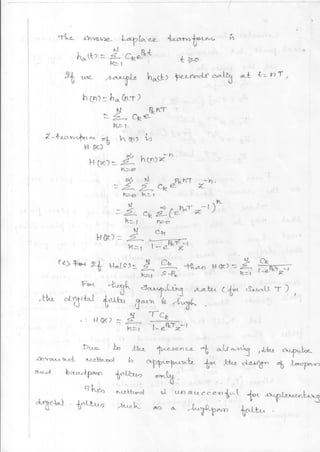 The inverse Laplace transform is
h_a(t) = N Σ k=1 C_k e^{P_k t}    t ≥ 0
If we sample h_a(t) periodically at t = nT,
h(n) = h_a(nT)
= N Σ k=1 C_k e^{P_k nT}
Z-transform of h(n) is
H(z)
H(z) = ∞ Σ n=0 h(n) z^{-n}.
= ∞ Σ n=0 N Σ k=1 C_k e^{P_k nT} z^{-n}.
= N Σ k=1 C_k ∞ Σ n=0 (e^{P_k T} z^{-1})^n.
H(z) = N Σ k=1 C_k / 1 - e^{P_k T} z^{-1}
If H_a(s) = N Σ k=1 C_k / S - P_k than H(z) = N Σ k=1 C_k / 1 - e^{P_k T} z^{-1}
For high sampling rates (for small T),
the digital filter gain is high.
∴ H(z) = N Σ k=1 T C_k / 1 - e^{P_k T} z^{-1}
Due to the presence of aliasing, the impulse
invariant method is appropriate for the design of lowpass
and bandpass filters only.
This method is unsuccessful for implementing
digital filters such as a highpass filter.